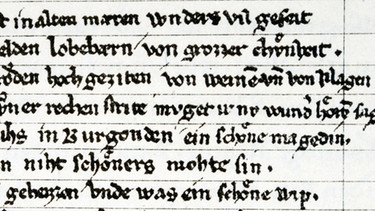 t in alten mæren wnders vil geseit
elden lobebæren von grozzer chvͦnheit.
voͤden hochgeziten von weinen vnͩ von klagen
vͦner rechen strite mvget ir nv wundͬ hoͤren sag
vͦhs in Burgonden ein schoͤne magedin.
n niht schoͤners mohte sin.
geheizzen vnde was ein schoͤne wip.